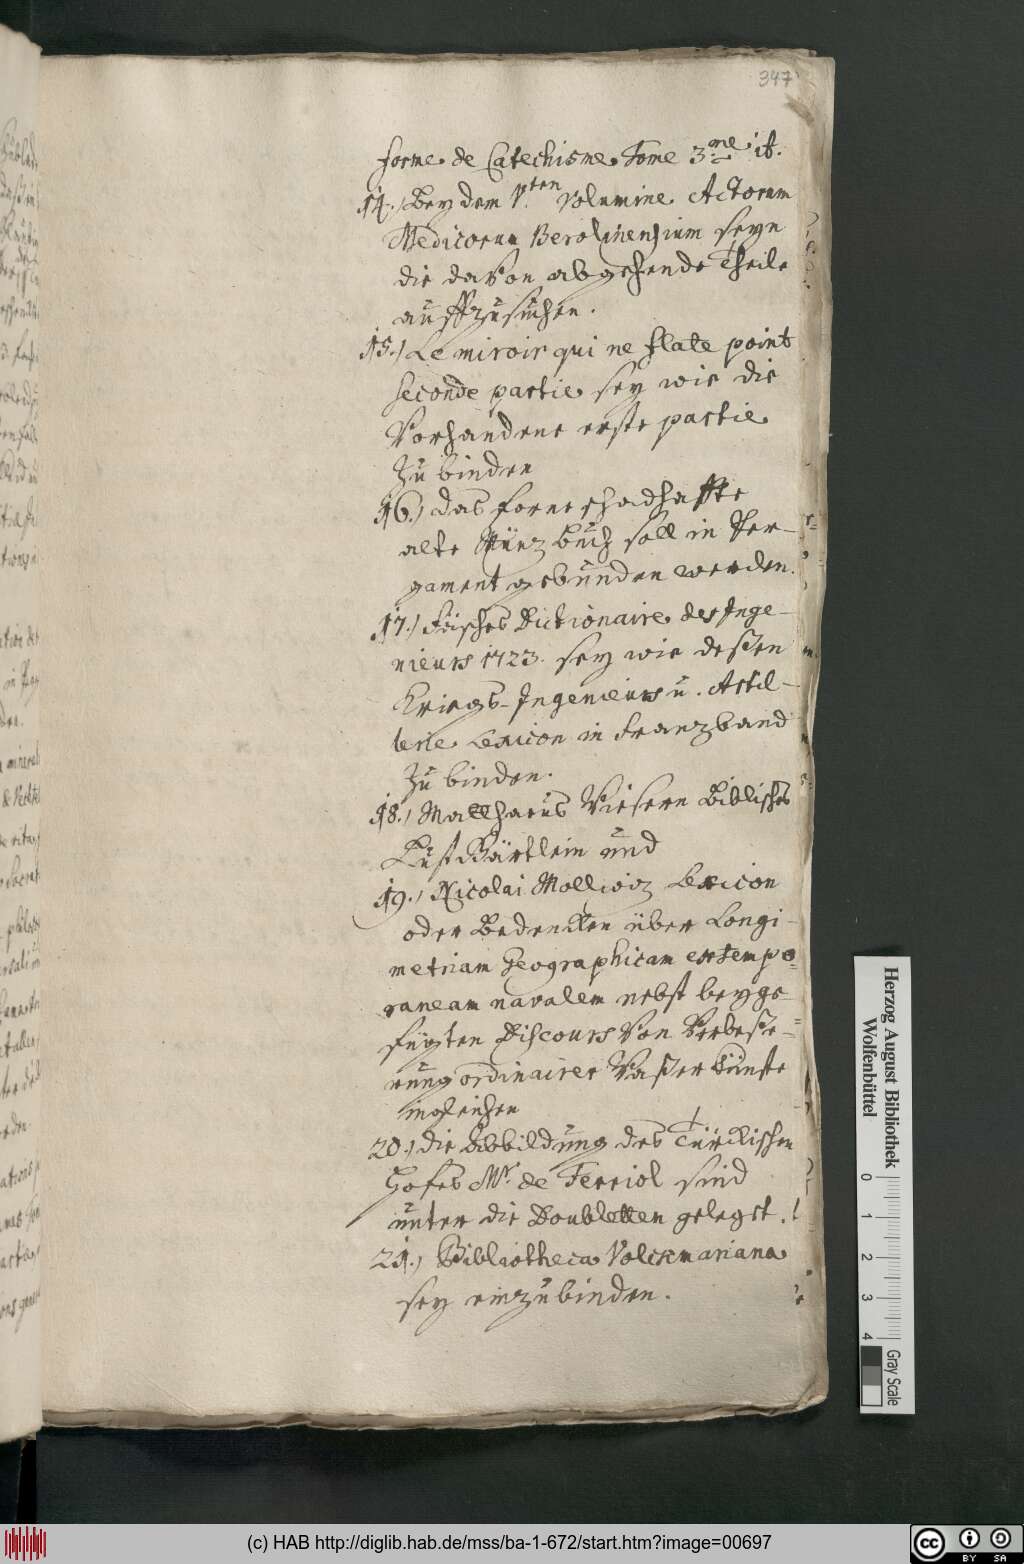 347
forme de Catechisme Tome 3me it.
14.) Bey dem V.ten Volumine Actorum
Medicorum Berolinensium seyn
die davon abgehende Theile
auffzusuchen.
15.) Le miroir qui ne flate point
seconde partie sey wie die
Vorhandene erste partie
zu binden
16.) das forne schadhaffte
alte Müntz buch soll in Per-
gament gebunden werden.
17.) Fäisches Dictionaire des Inge-
nieurs 1723. sey wie deßen
Kriegs-Ingenieurs u. Artil-
lerie Lexicon in Franzband
zu binden.
18.) Matthaeus Biblisches
Lust Gärtlein und
19.) Nicolai Mollwiz Lexicon
oder Bedencken über Longi-
metriam Geographicam extempo-
raneam navalem nebst beyge-
fügten Discours von Verbeße-
rung ordinairer Waßer Künste
ingleichen
20.) die Abbildung des Türckischen
Hofes Mr. de Ferriol sind
unter die Doubletten gelegt.
21.) Bibliotheca Volckmariana
sey einzubinden.
Herzog August Bibliothek
Wolfenbüttel
0 1 2 3 4
Gray Scale
(c) HAB http://diglib.hab.de/mss/ba-1-672/start.htm?image=00697
cc BY SA